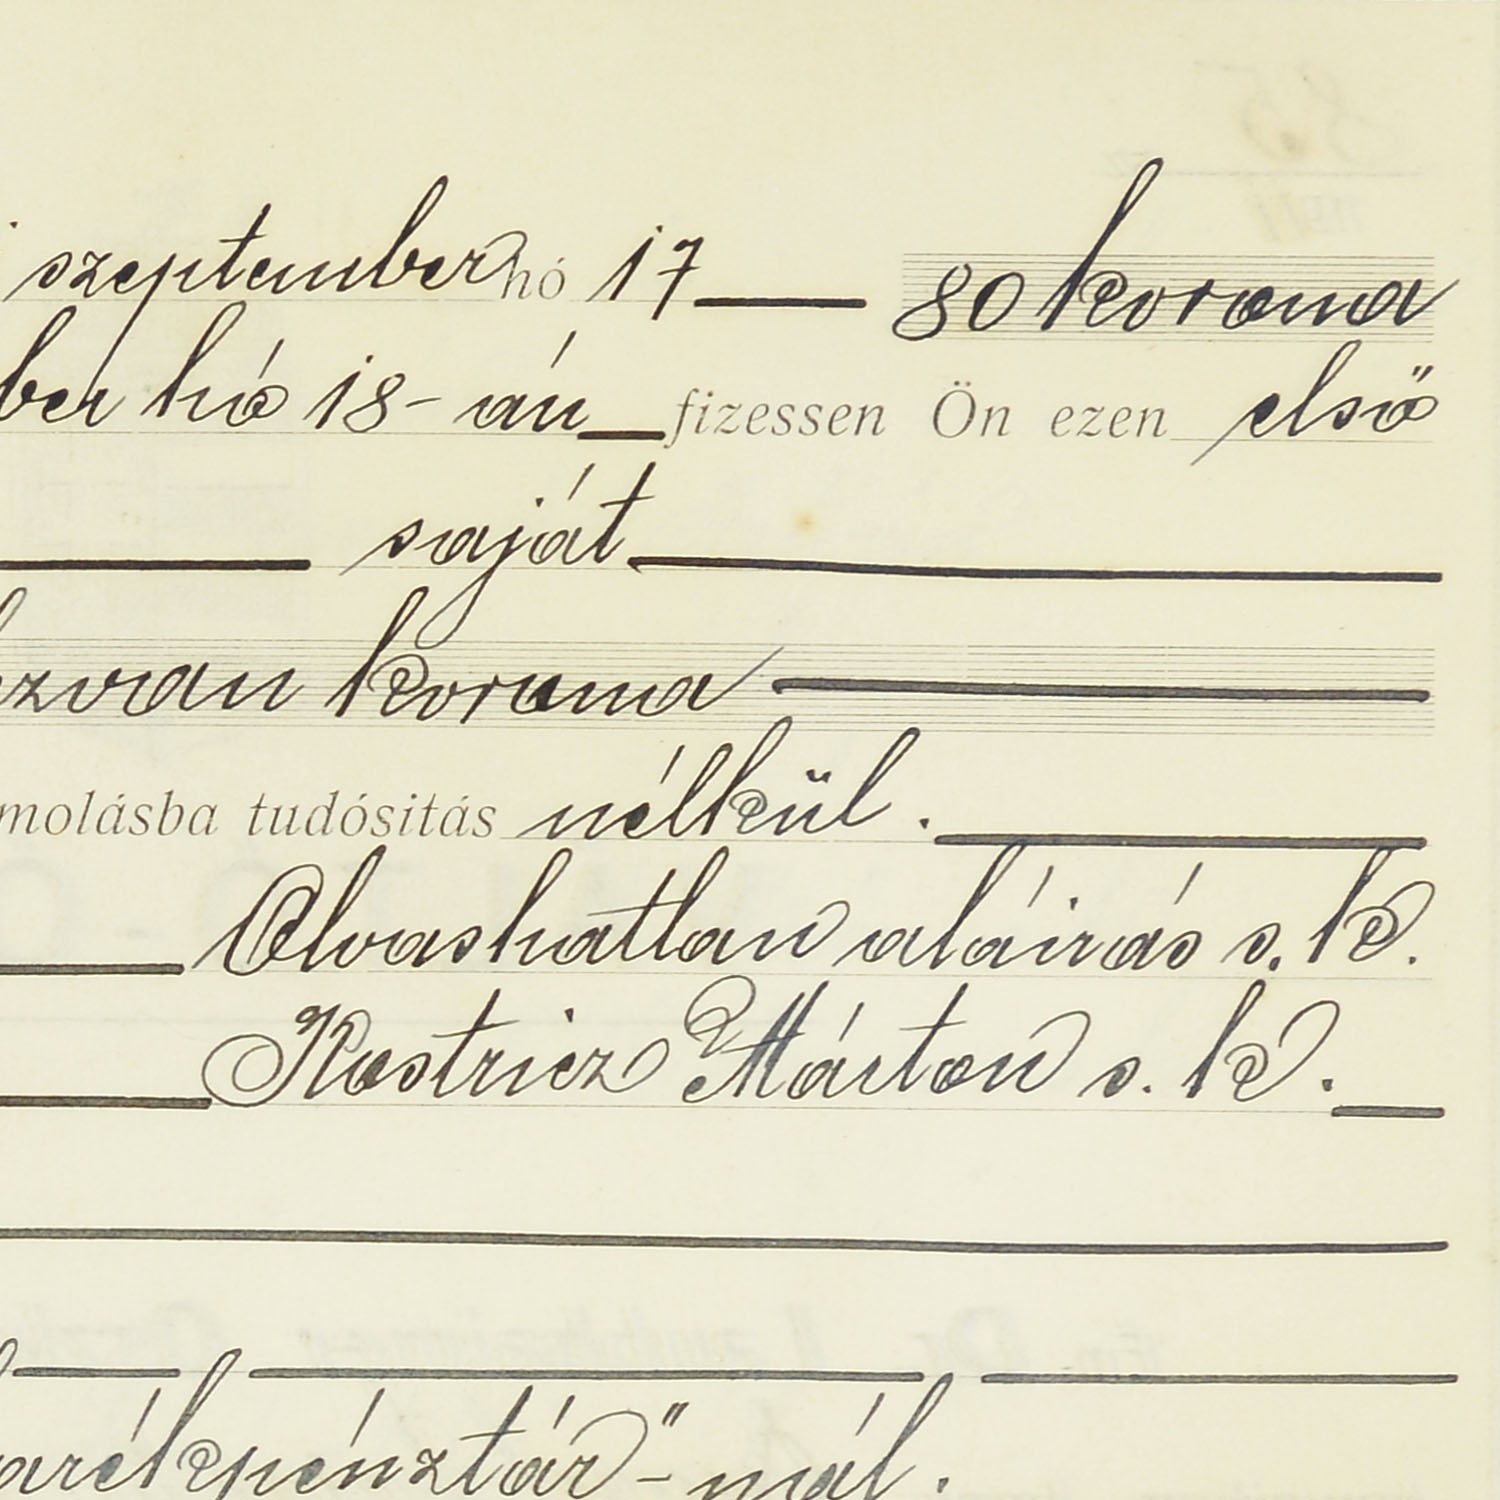 szeptember hó 17 80 korona
ber hó 18-án fizessen Ön ezen első
saját
zvan korona
molásba tudósitás nélkül.
Olvashatlan aláirás s. k.
Kostricz Márton s. k.
arékpénztár"-nál.